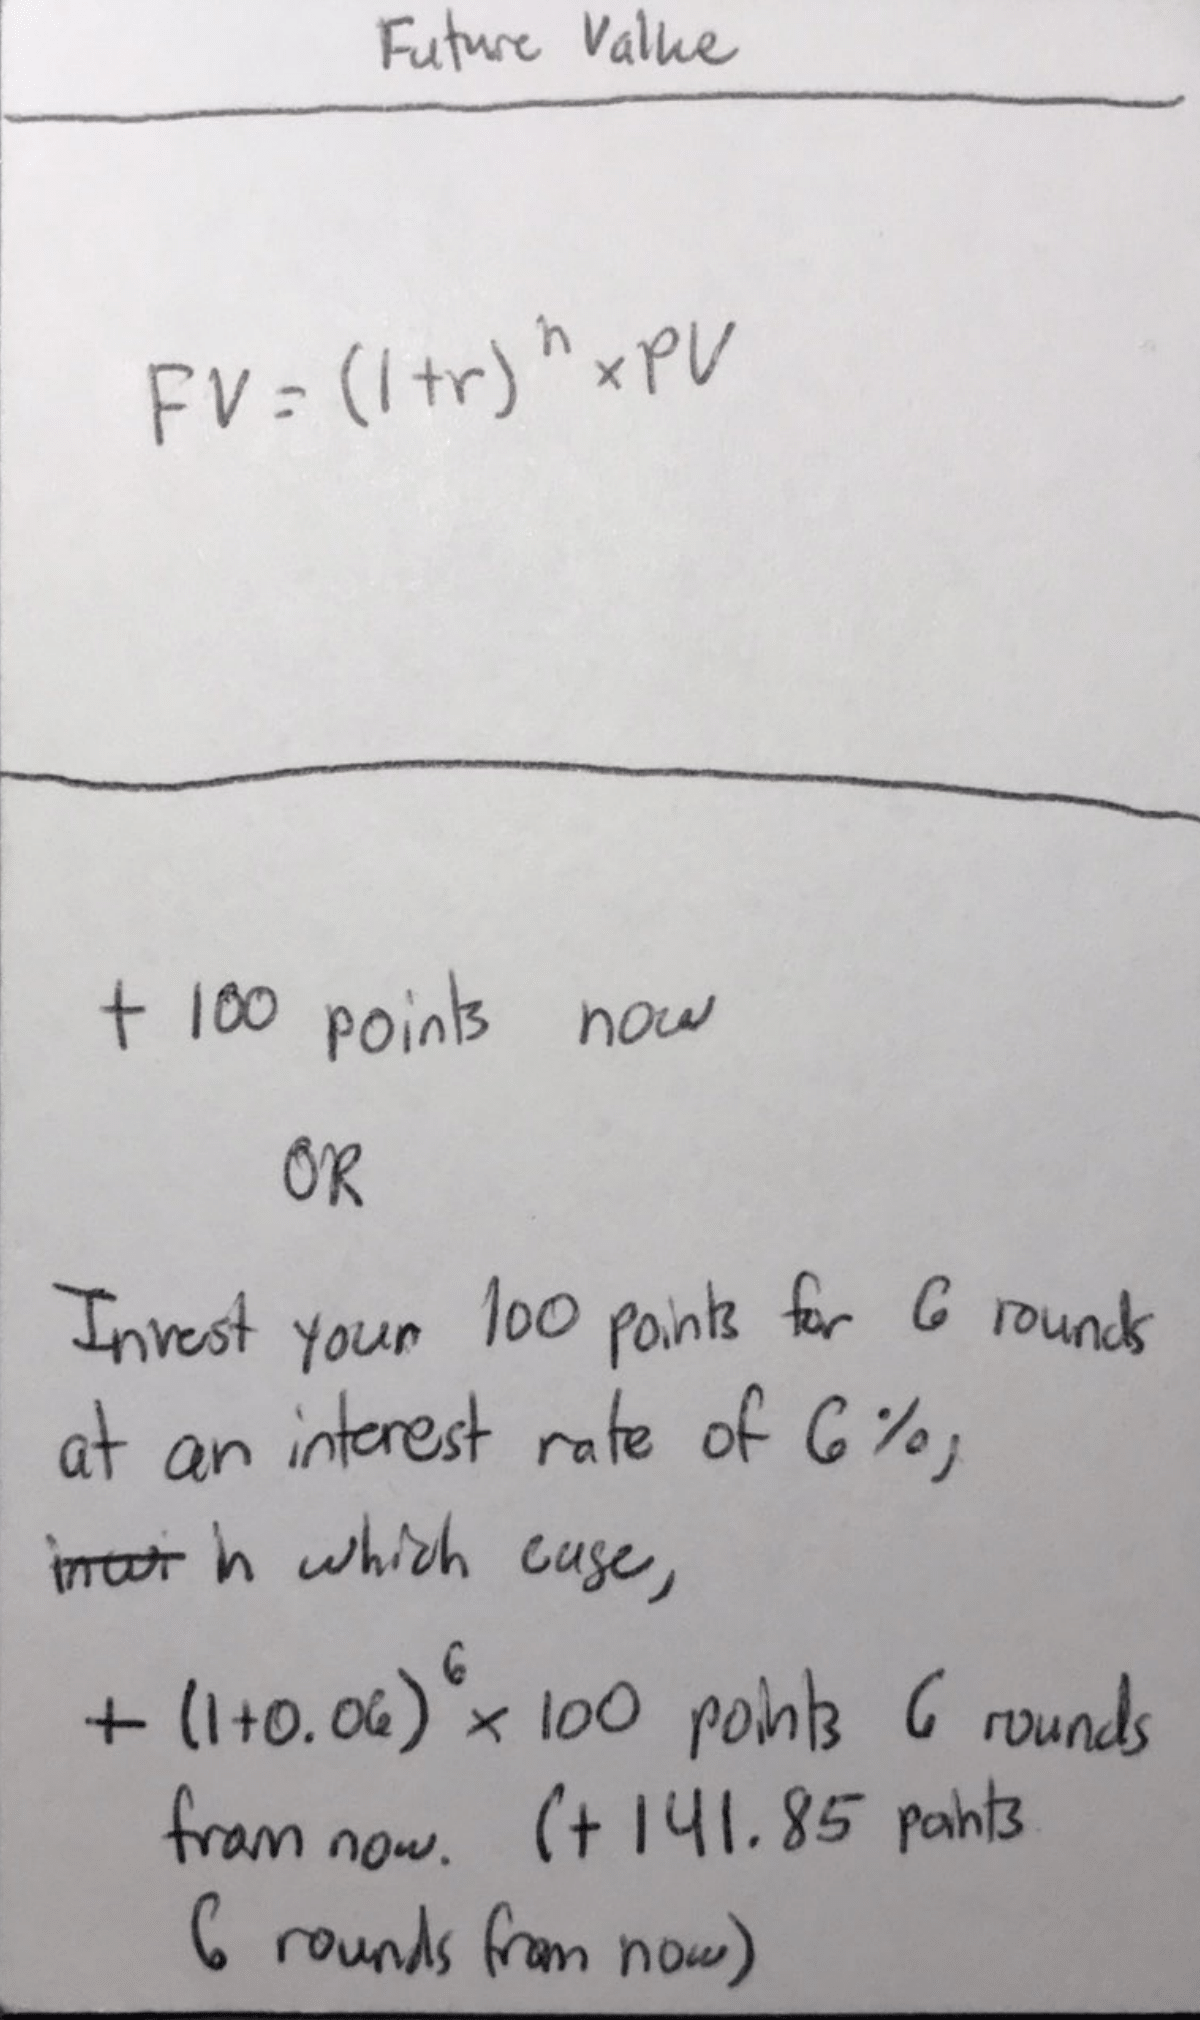 Future Value
FV = (1+r)^n × PV
+ 100 points now
OR
Invest your 100 points for 6 rounds
at an interest rate of 6%,
in which case,
+ (1+0.06)^6 × 100 points 6 rounds
from now. (+ 141.85 points
6 rounds from now)